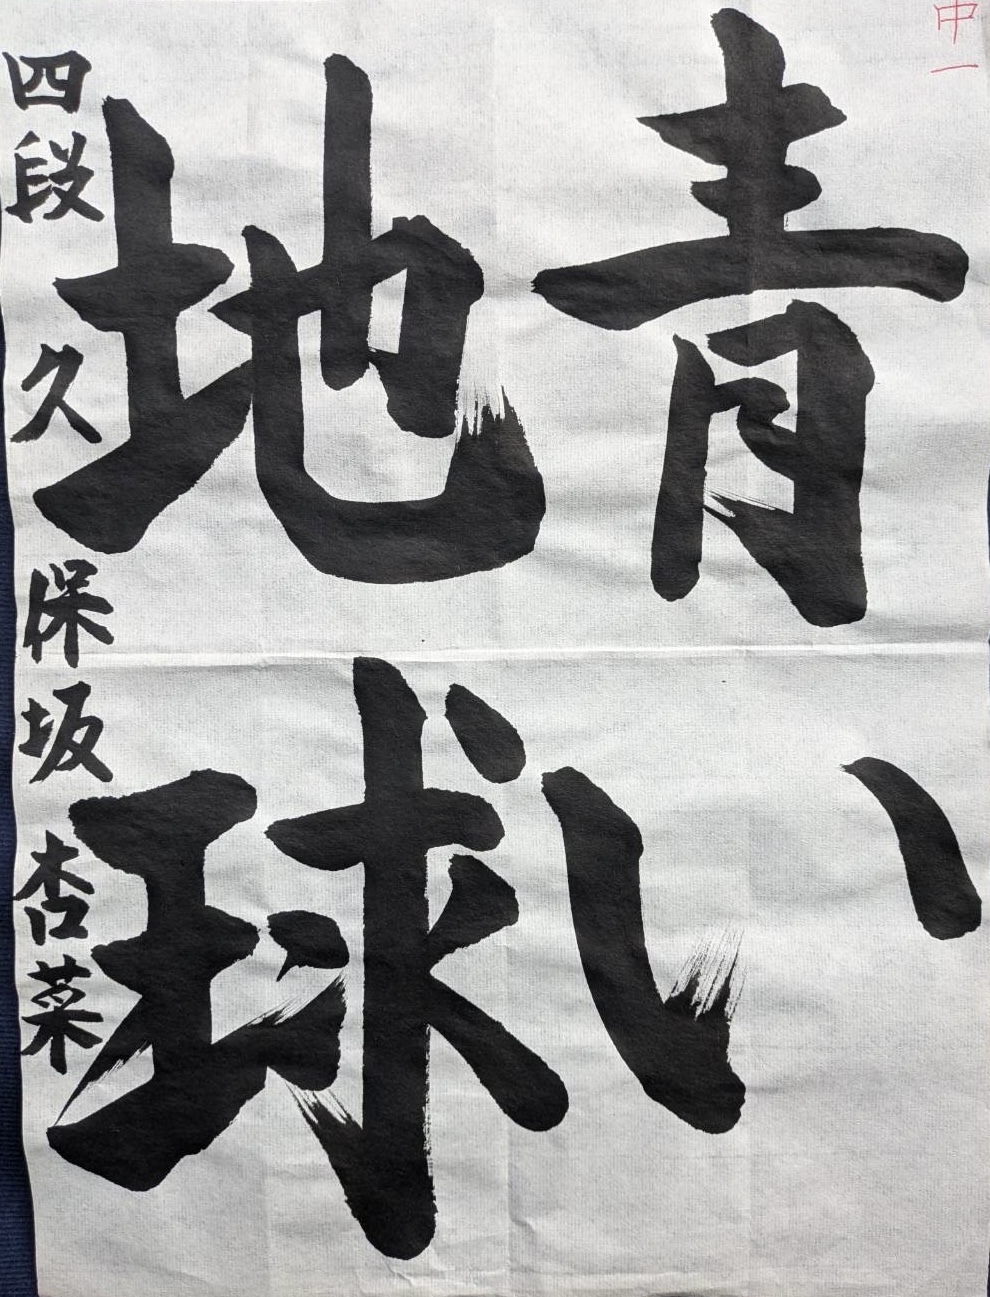 中一
青い
地球
四段 久保坂杏菜